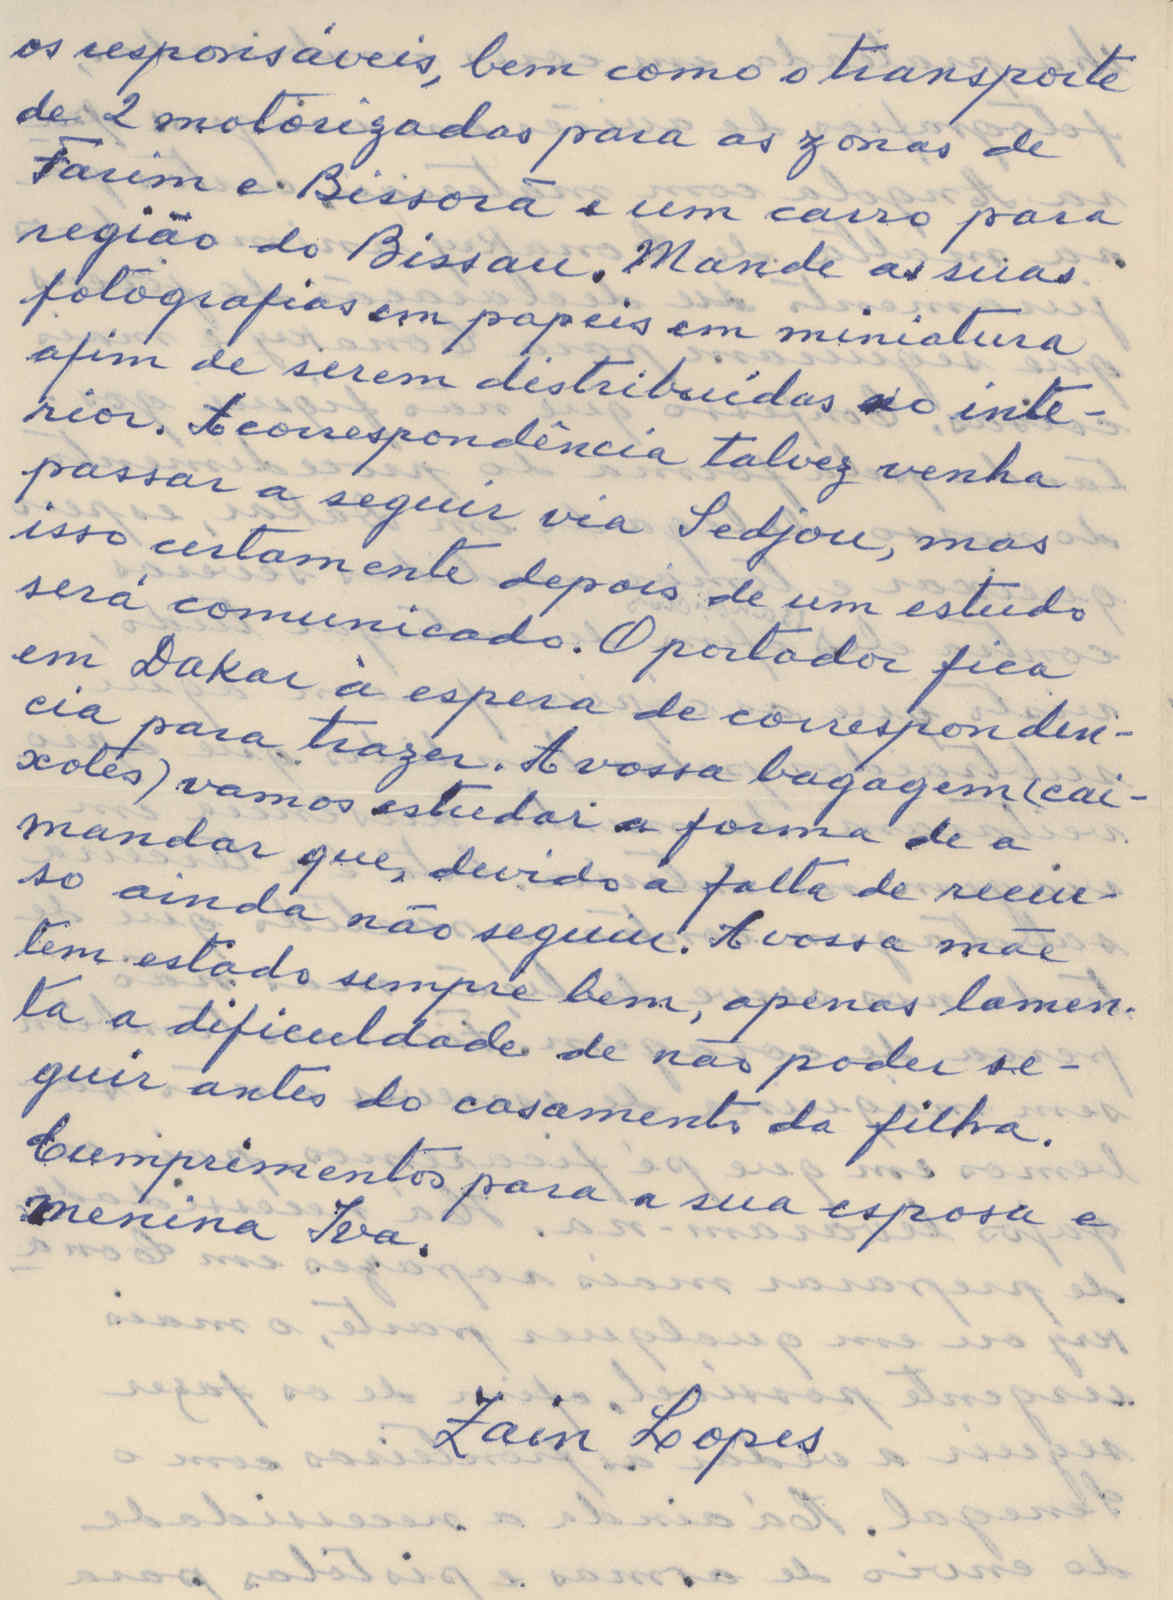 os responsáveis, bem como o transporte
de 2 motorizadas para as zonas de
Farim e Bissorã e um carro para
região do Bissau. Mande as suas
fotografias em papeis em miniatura
afim de serem distribuídas no inte-
rior. A correspondência talvez venha
passar a seguir via Sedjou, mas
isso certamente depois de um estudo
será comunicado. O portador fica
em Dakar à espera de corresponden-
cia para trazer. A vossa bagagem (cai-
xotes) vamos estudar a forma de a
mandar que, devido a falta de recur-
so ainda não seguiu. A vossa mãe
tem estado sempre bem, apenas lamen-
ta a dificuldade de não poder se-
guir antes do casamento da filha.
Cumprimentos para a sua esposa e
menina Iva.
Zain Lopes